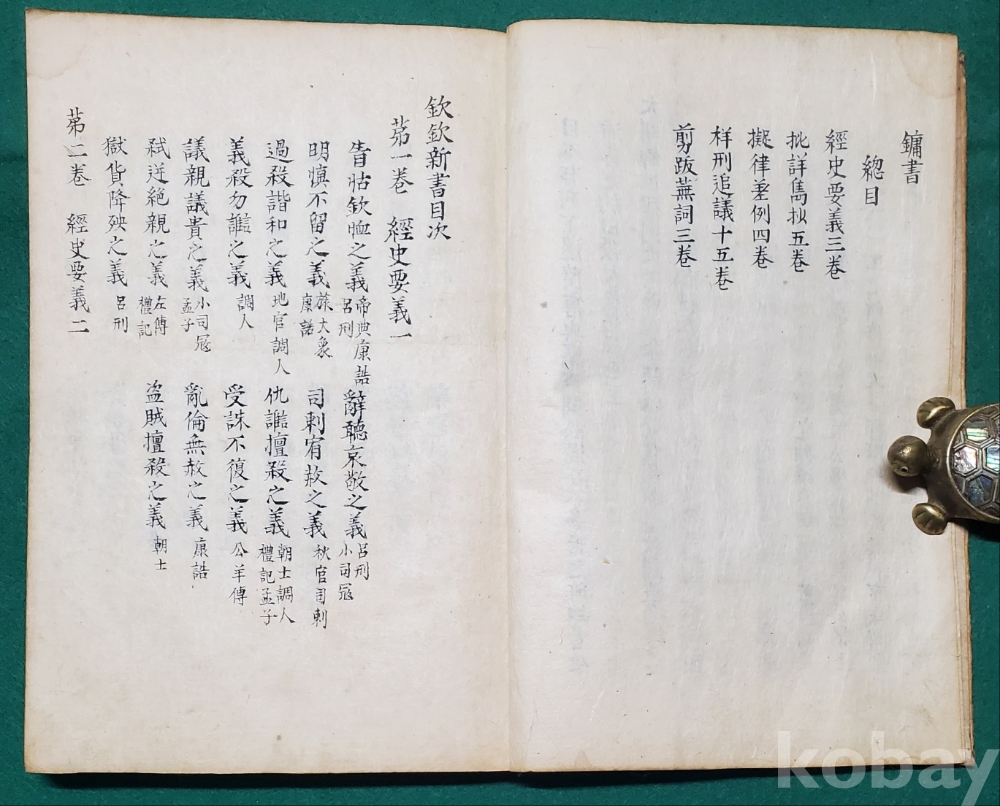 鏞書
總目
經史要義三卷
批詳雋抄五卷
擬律差例四卷
祥刑追議十五卷
剪跋蕪詞三卷
欽欽新書目次
苐一卷 經史要義一
眚怙欽恤之義 帝典康誥呂刑 辭聽哀敬之義 呂刑小司寇
明慎不留之義 旅大象康誥 司刺宥赦之義 秋官司刺
過殺諧和之義 地官調人 仇讎擅殺之義 朝士調人禮記孟子
義殺勿讎之義 調人 受誅不復之義 公羊傳
議親議貴之義 小司寇孟子 亂倫無赦之義 康誥
弑逆絶親之義 左傳禮記 盗賊擅殺之義 朝士
獄貨降殃之義 呂刑
苐二卷 經史要義二
kobay